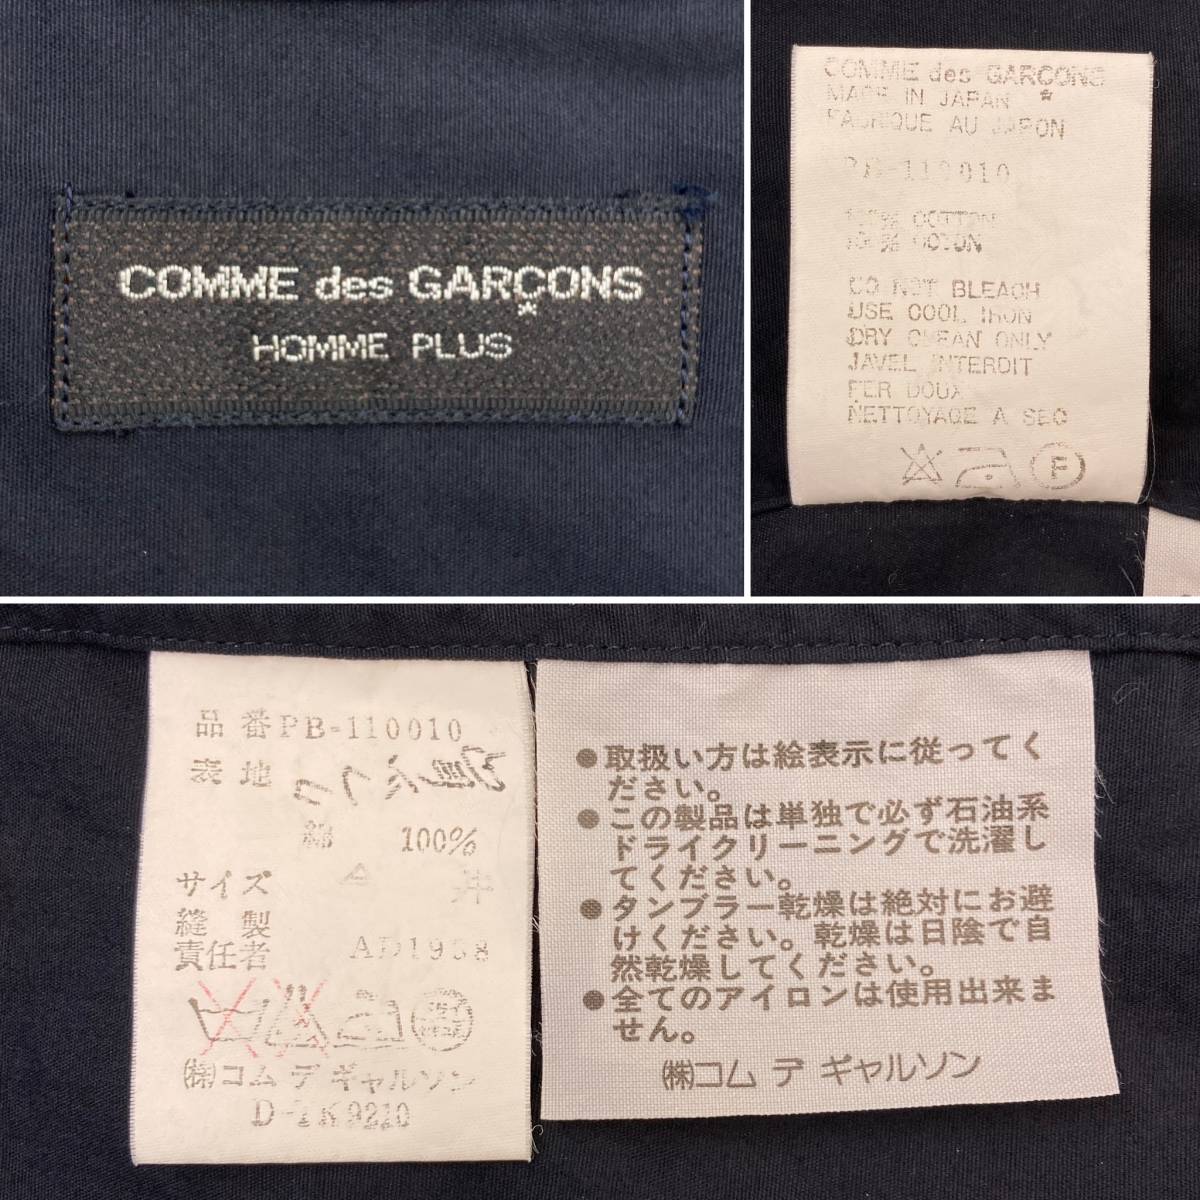 COMME des GARÇONS
HOMME PLUS
COMME des GARÇONS
MADE IN JAPAN
FABRIQUE AU JAPON
PB-110010
100% COTTON
100% COTON
DO NOT BLEACH
USE COOL IRON
DRY CLEAN ONLY
JAVEL INTERDIT
FER DOUX
NETTOYAGE A SEC
F
品番PB-110010
表地
綿 100%
サイズ
縫製
責任者 AD1998
㈱コム デ ギャルソン
D-TK9210
●取扱い方は絵表示に従ってく
ださい。
●この製品は単独で必ず石油系
ドライクリーニングで洗濯し
てください。
●タンブラー乾燥は絶対にお避
けください。乾燥は日陰で自
然乾燥してください。
●全てのアイロンは使用出来ま
せん。
㈱コム デ ギャルソン